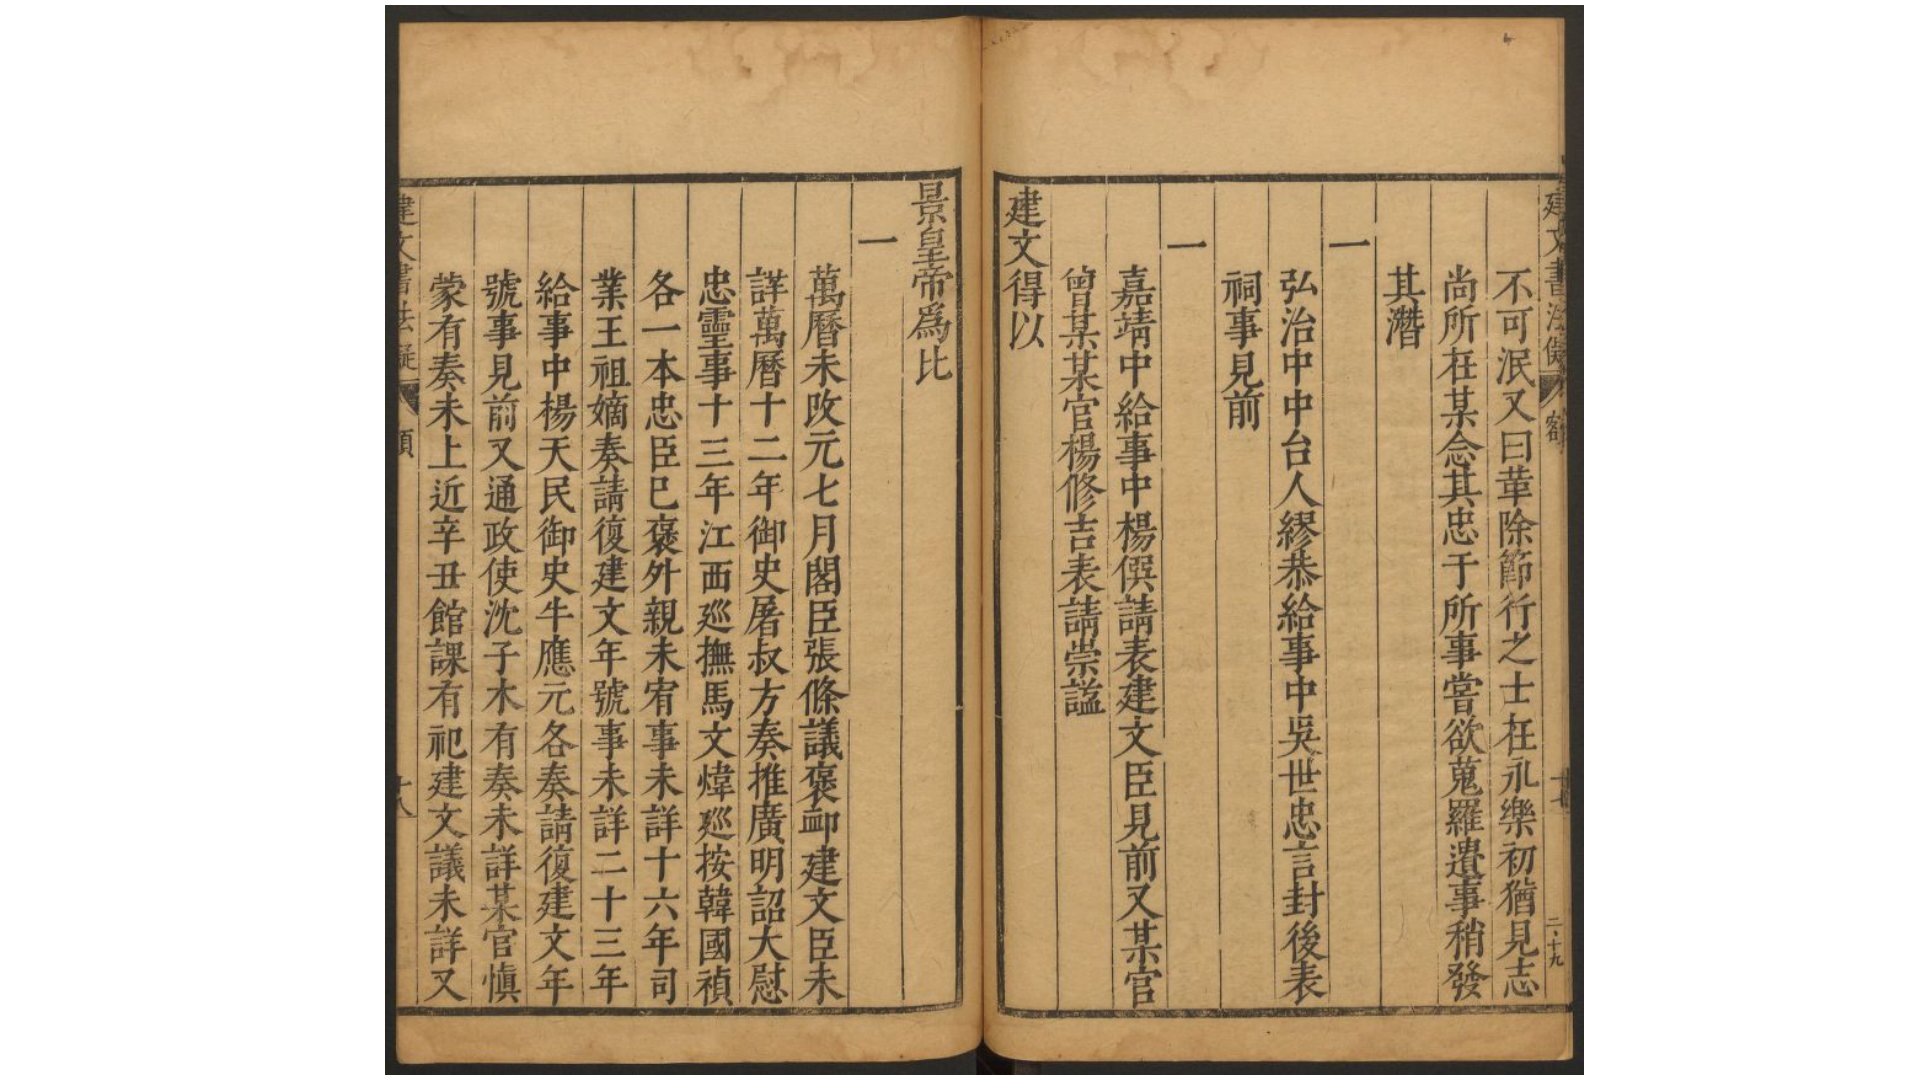 不可泯又曰革除節行之士在永樂初猶見志
尚所在某念其忠于所事嘗欲蒐羅遺事稍發
其潛
一
弘治中中台人繆恭給事中吳世忠言封後表
祠事見前
一
嘉靖中給事中楊僎請表建文臣見前又某官
曾某某官楊修吉表請崇謚
建文得以
景皇帝爲比
一
萬曆未改元七月閣臣張條議褒卹建文臣未
詳萬曆十二年御史屠叔方奏推廣明詔大慰
忠靈事十三年江西巡撫馬文煒巡按韓國禎
各一本忠臣已褒外親未宥事未詳十六年司
業王祖嫡奏請復建文年號事未詳二十三年
給事中楊天民御史牛應元各奏請復建文年
號事見前又通政使沈子木有奏未詳某官慎
蒙有奏未上近辛丑館課有祀建文議未詳又
建文書法儗
十八